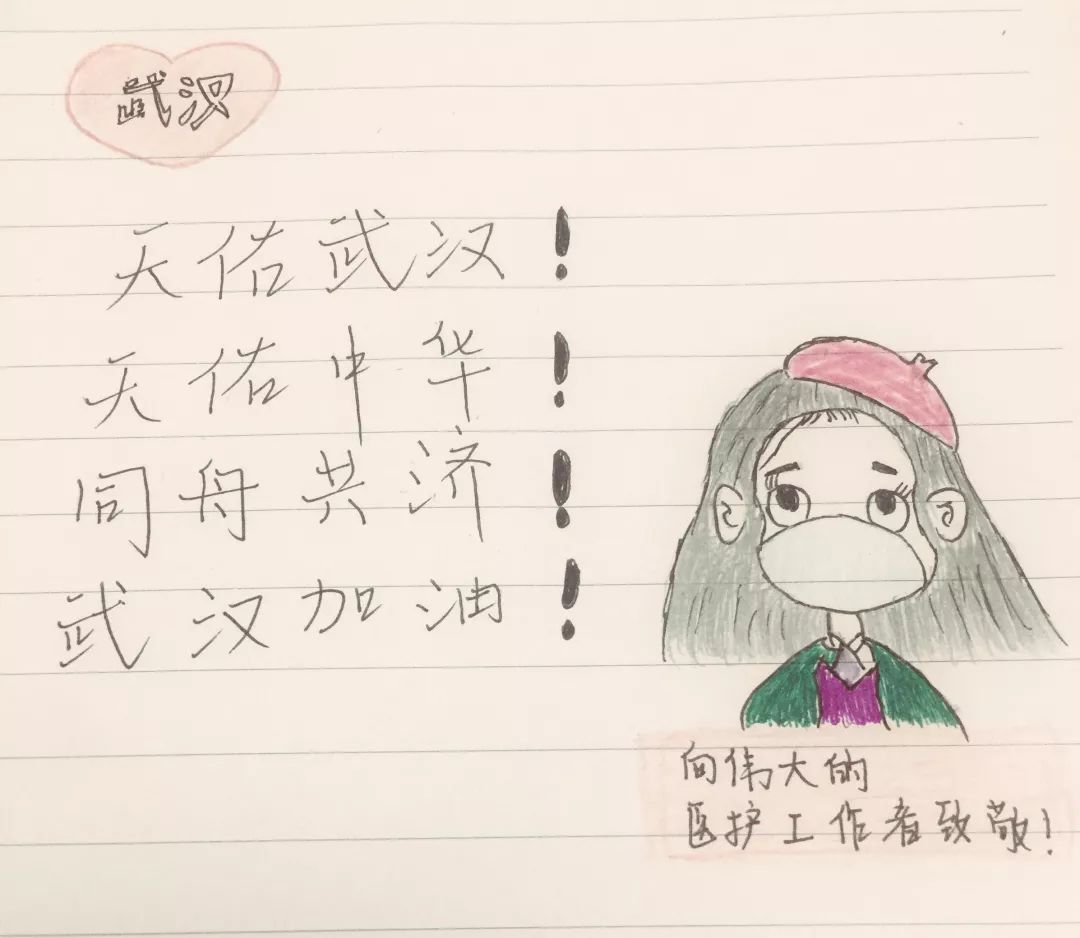 武汉
天佑武汉！
天佑中华！
同舟共济！
武汉加油！
向伟大的
医护工作者致敬！